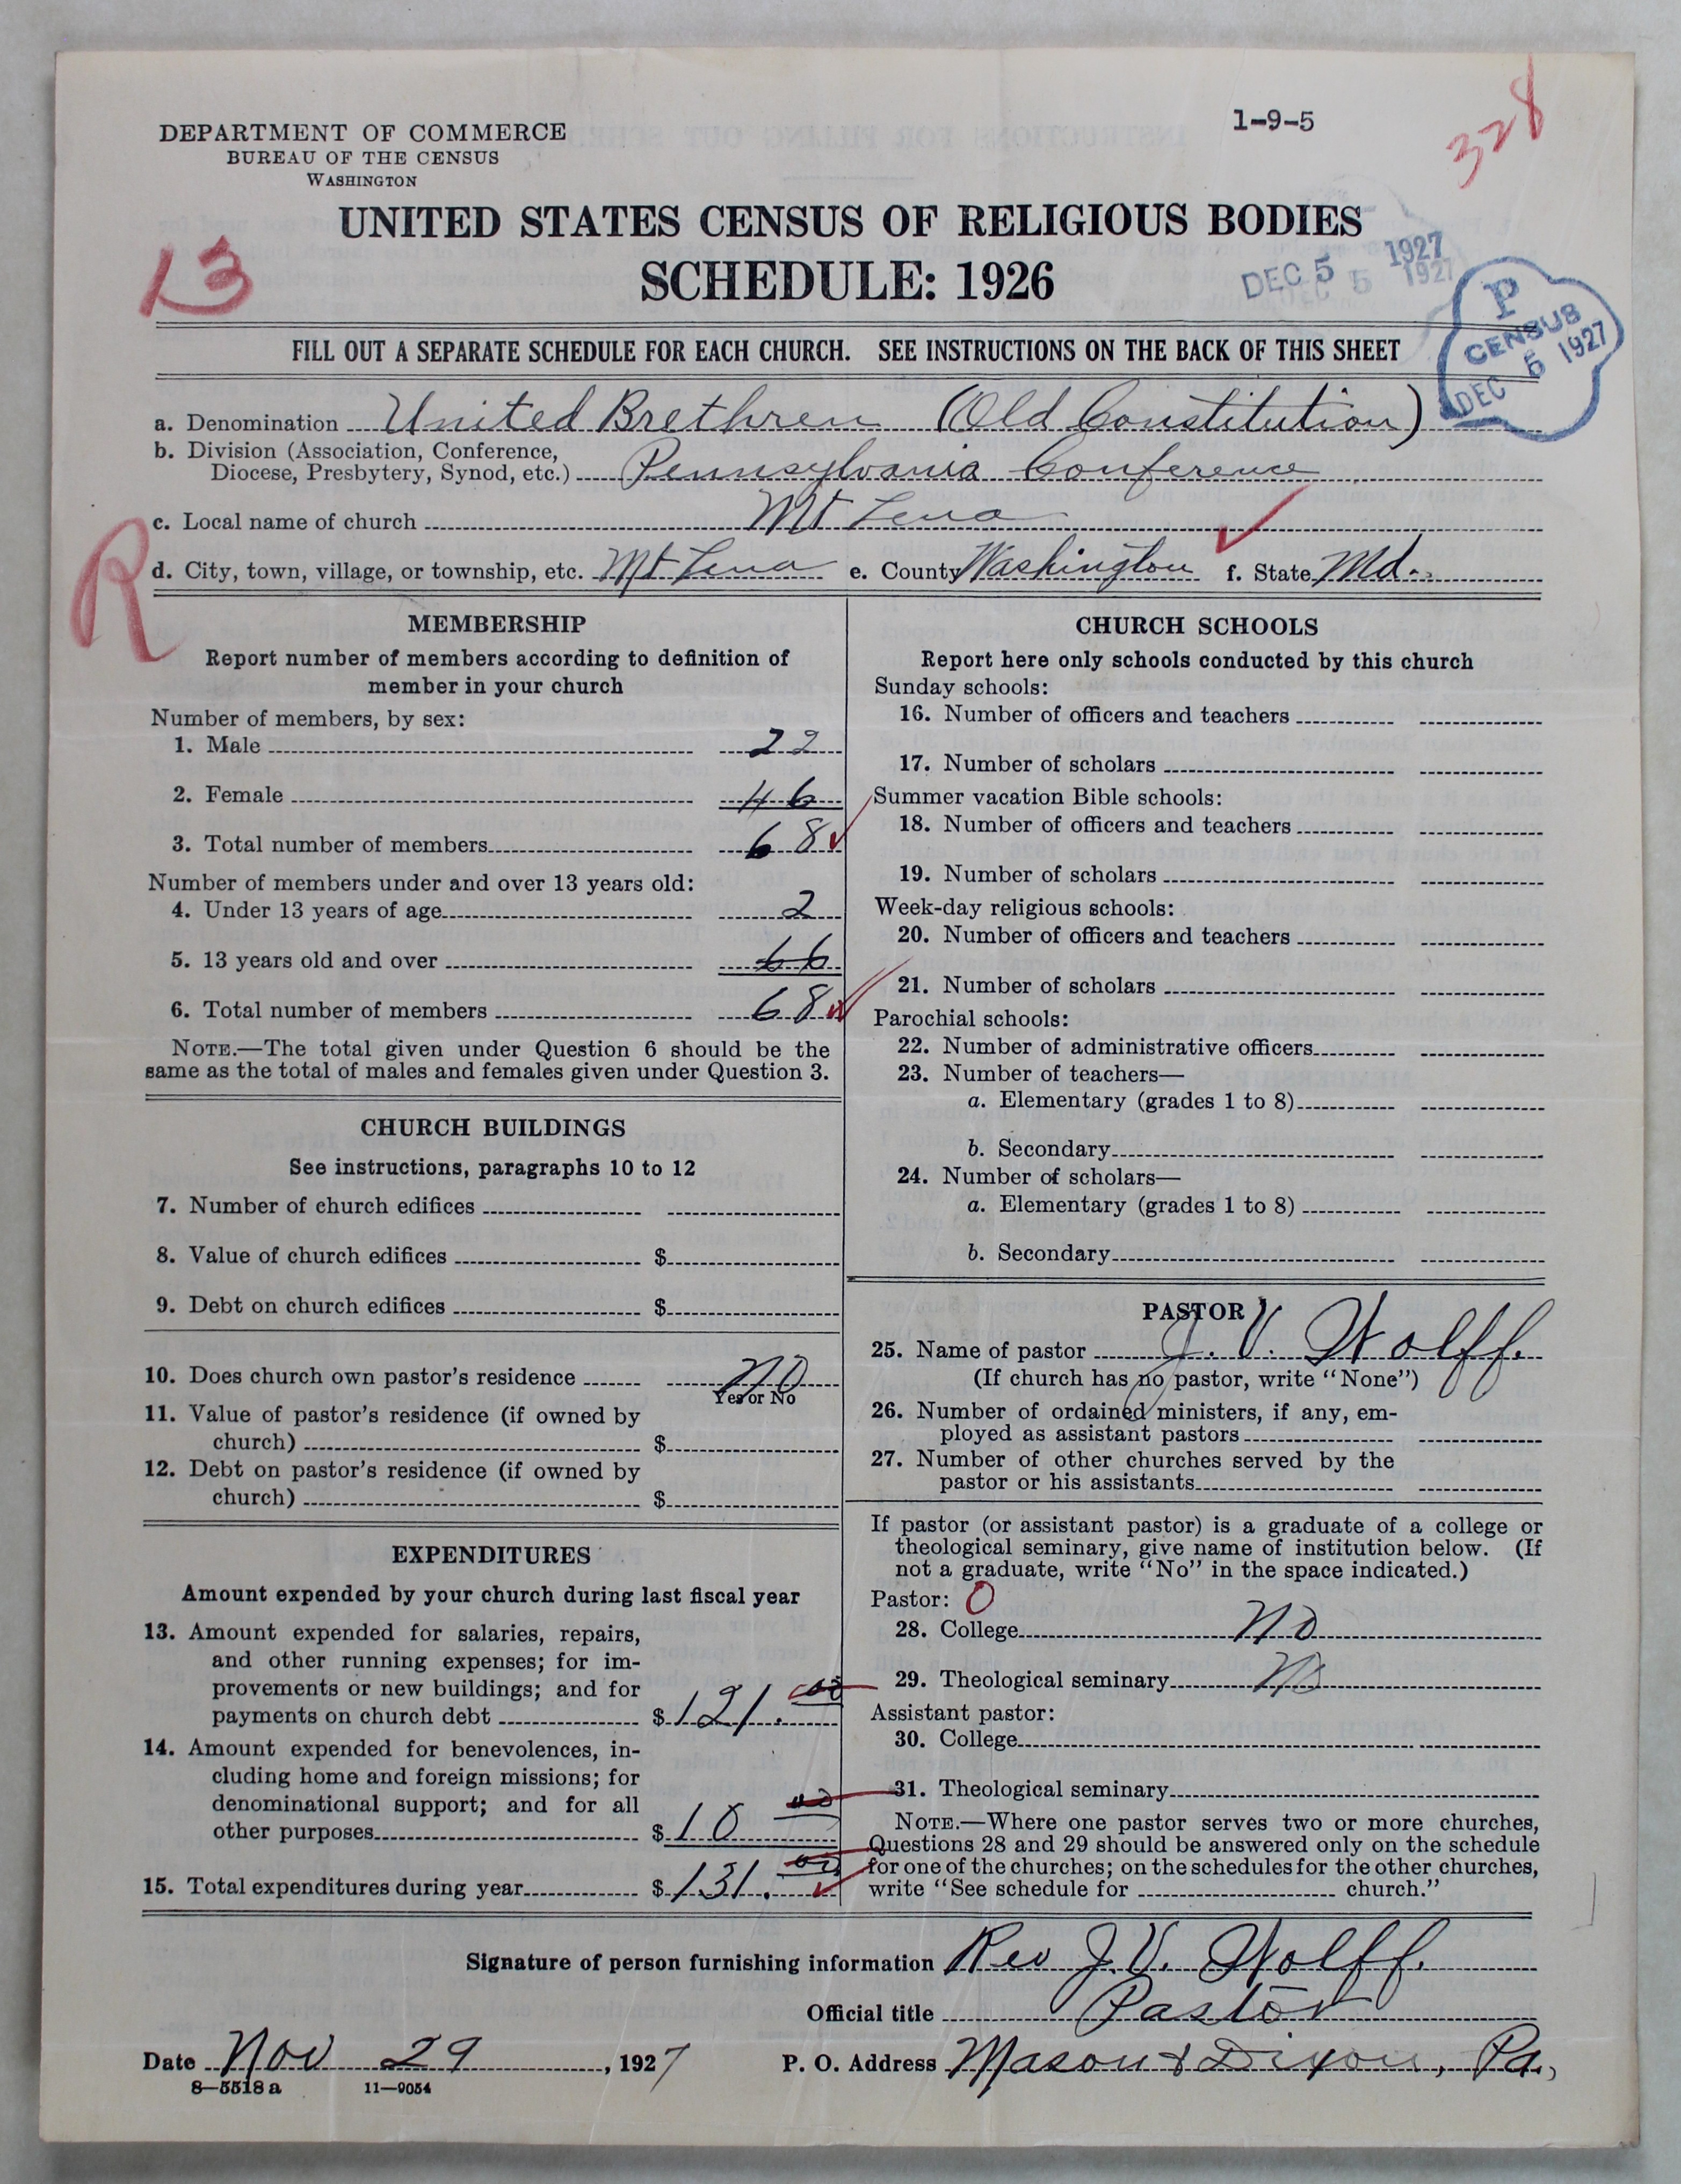 DEPARTMENT OF COMMERCE
BUREAU OF THE CENSUS
WASHINGTON
1-9-5
328
UNITED STATES CENSUS OF RELIGIOUS BODIES
SCHEDULE: 1926
13
DEC 5 1927
DEC 5 1927
P
CENSUS
DEC 5 1927
FILL OUT A SEPARATE SCHEDULE FOR EACH CHURCH. SEE INSTRUCTIONS ON THE BACK OF THIS SHEET
a. Denomination United Brethren (Old Constitution)
b. Division (Association, Conference,
Diocese, Presbytery, Synod, etc.) Pennsylvania Conference
c. Local name of church Mt Lena
R
d. City, town, village, or township, etc. Mt Lena e. County Washington f. State Md.
MEMBERSHIP
Report number of members according to definition of
member in your church
Number of members, by sex:
1. Male 22
2. Female 46
3. Total number of members 68
Number of members under and over 13 years old:
4. Under 13 years of age 2
5. 13 years old and over 66
6. Total number of members 68
NOTE.—The total given under Question 6 should be the
same as the total of males and females given under Question 3.
CHURCH BUILDINGS
See instructions, paragraphs 10 to 12
7. Number of church edifices
8. Value of church edifices $
9. Debt on church edifices $
10. Does church own pastor's residence No
Yes or No
11. Value of pastor's residence (if owned by
church) $
12. Debt on pastor's residence (if owned by
church) $
EXPENDITURES
Amount expended by your church during last fiscal year
13. Amount expended for salaries, repairs,
and other running expenses; for im-
provements or new buildings; and for
payments on church debt $121.00
14. Amount expended for benevolences, in-
cluding home and foreign missions; for
denominational support; and for all
other purposes $10 00
15. Total expenditures during year $131.00
CHURCH SCHOOLS
Report here only schools conducted by this church
Sunday schools:
16. Number of officers and teachers
17. Number of scholars
Summer vacation Bible schools:
18. Number of officers and teachers
19. Number of scholars
Week-day religious schools:
20. Number of officers and teachers
21. Number of scholars
Parochial schools:
22. Number of administrative officers
23. Number of teachers—
a. Elementary (grades 1 to 8)
b. Secondary
24. Number of scholars—
a. Elementary (grades 1 to 8)
b. Secondary
PASTOR
25. Name of pastor J. V. Wolff.
(If church has no pastor, write "None")
26. Number of ordained ministers, if any, em-
ployed as assistant pastors
27. Number of other churches served by the
pastor or his assistants
If pastor (or assistant pastor) is a graduate of a college or
theological seminary, give name of institution below. (If
not a graduate, write "No" in the space indicated.)
Pastor: 0
28. College No
29. Theological seminary No
Assistant pastor:
30. College
31. Theological seminary
NOTE.—Where one pastor serves two or more churches,
Questions 28 and 29 should be answered only on the schedule
for one of the churches; on the schedules for the other churches,
write "See schedule for church."
Signature of person furnishing information Rev J. V. Wolff.
Official title Pastor
Date Nov 29, 1927 P. O. Address Mason & Dixon, Pa.,
8—5518 a 11—9054